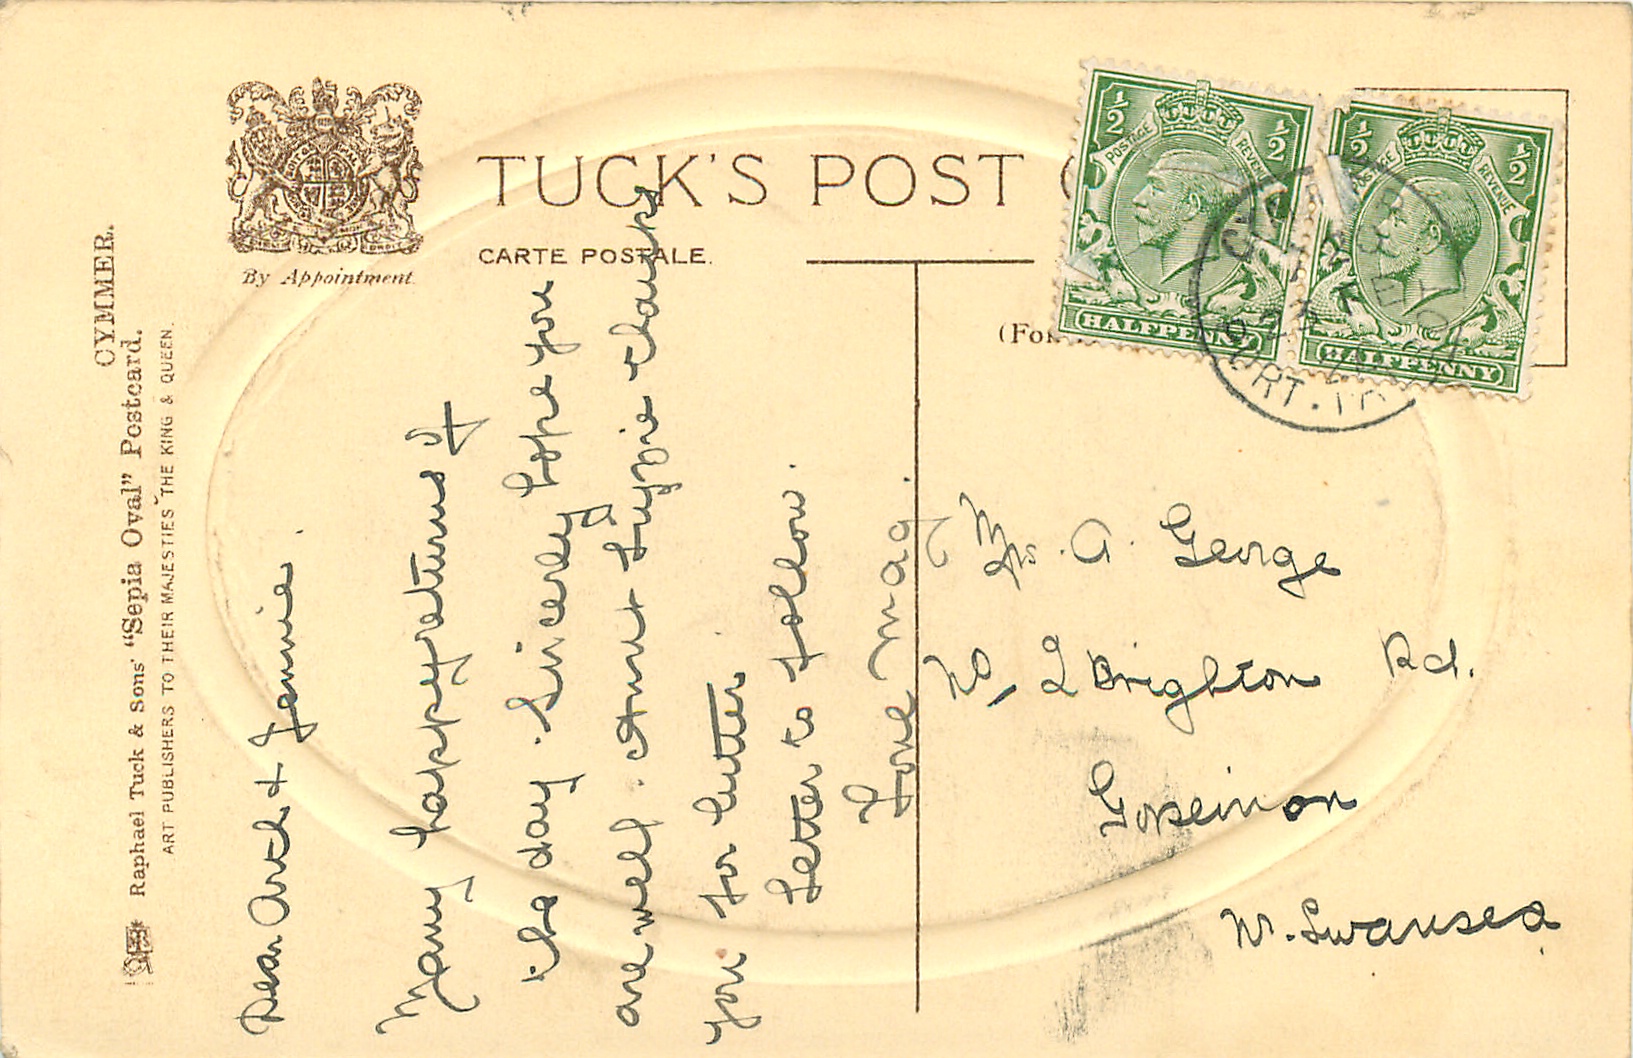 CYMMER.
Raphael Tuck & Sons' "Sepia Oval" Postcard.
ART PUBLISHERS TO THEIR MAJESTIES THE KING & QUEEN.
By Appointment.
TUCK'S POST
CARTE POSTALE.
(For
½ POSTAGE REVENUE ½
HALFPENNY
½ REVENUE ½
HALFPENNY
PORT. TA
Dear Arth & Jennie.
Many happy returns of
the day. Sincerely hope you
are well. Aunt Lizzie thanks
you for letter
Letter to follow.
Love Mag.
Mrs. A. George
No, 2 Brighton Rd.
Gorseinon
Nr. Swansea